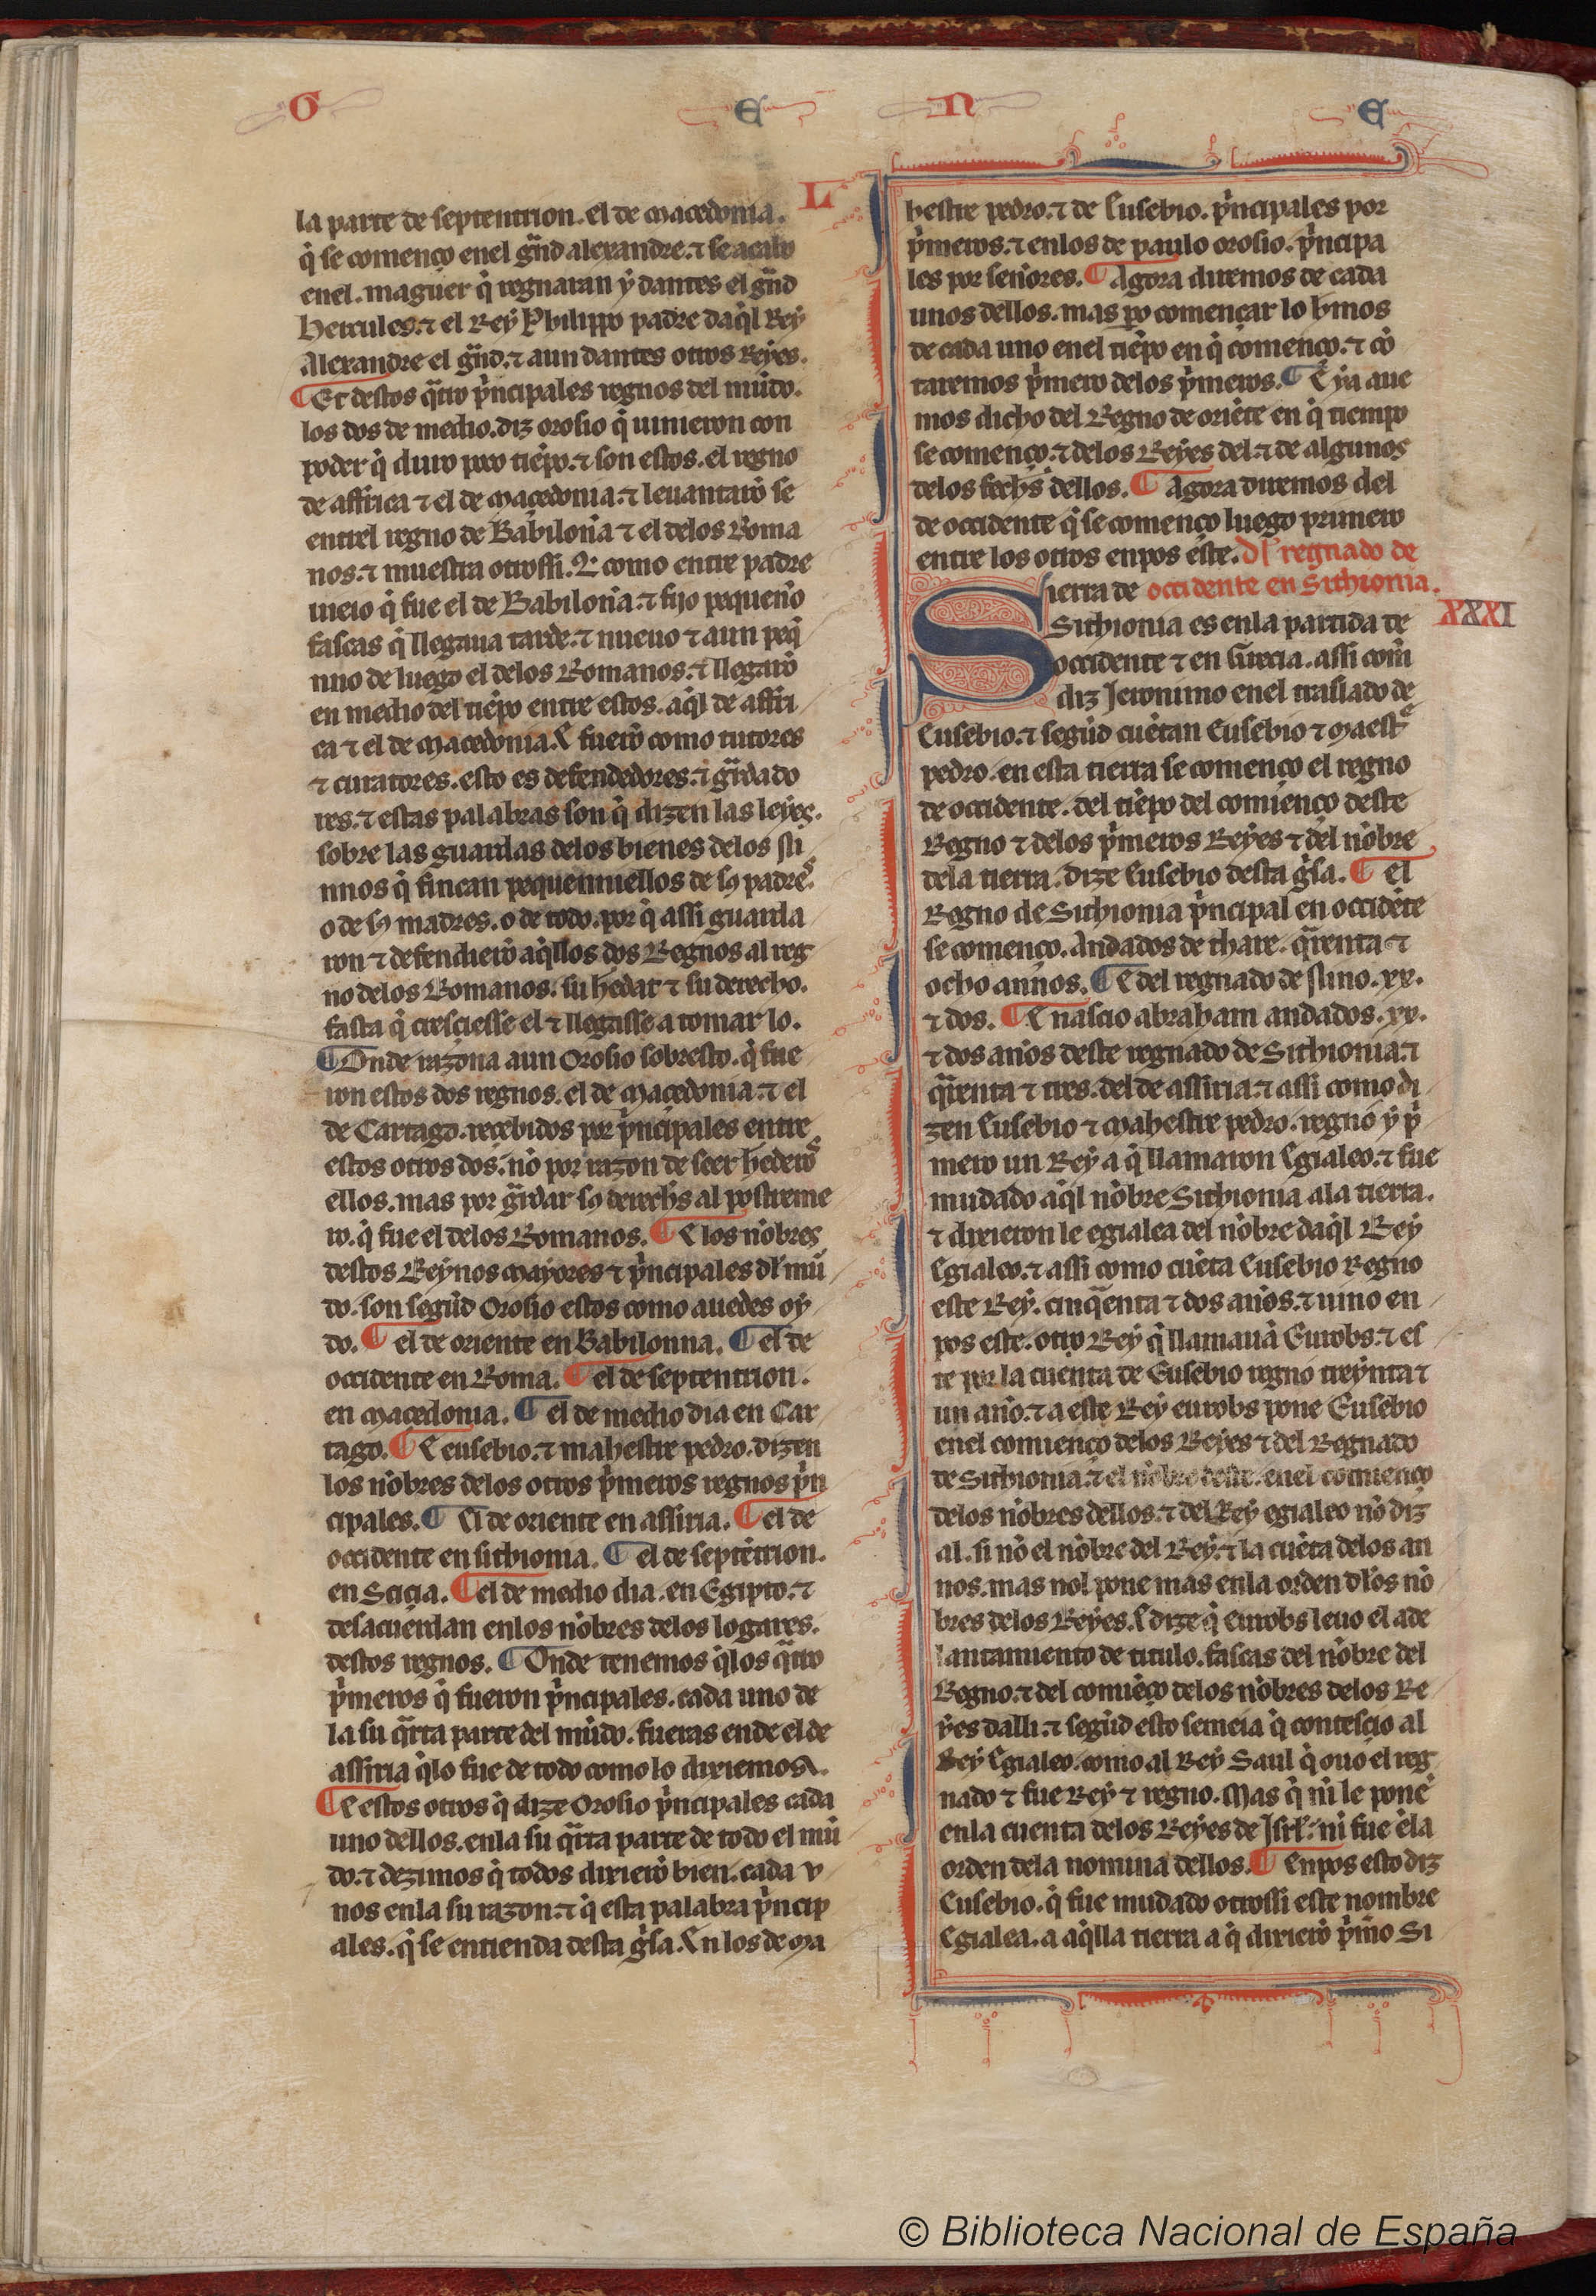 G E N E
L
la parte de septentrion. el de macedonia.
q̇ se començo enel gr̄nd alexandre. ⁊ se acabo
enel. maguer q̇ regnaran ẏ dantes el gr̄nd
Hercules. ⁊ el Reẏ Philippo padre daq̇l Reẏ
Alexandre el gr̄nd. ⁊ aun dantes otros Reẏes.
¶ Et destos q̄tro ṗncipales regnos del mūdo.
los dos de medio. diz orosio q̇ uinieron con
poder q̇ duro poco tiēpo. ⁊ son estos. el regno
de affrica ⁊ el de macedonia. ⁊ leuantarō se
entrel regno de Babiloña ⁊ el delos Roma
nos. ⁊ muestra otrossi. Q̇ como entre padre
uieio q̇ fue el de Babiloña. ⁊ fijo pequeño
fascas q̇ llegaua tarde. ⁊ nueuo ⁊ aun peq̇
nno de luego el delos Romanos. ⁊ llegarō
en medio del tiēpo entre estos. aq̇l de affri
ca ⁊ el de macedonia. E fuerō como tutores
⁊ curatores. esto es defendedores. ⁊ gūardado
res. ⁊ estas palabras son q̇ dizen las leẏes.
sobre las guardas delos bienes delos ni
nnos q̇ fincan pequennuellos de sꝰ padres.
o de sꝰ madres. o de todo. por q̇ assi guarda
ron ⁊ defendierō aq̇llos dos Regnos al reg
no delos Romanos. su hedat ⁊ su derecho.
fasta q̇ cresciesse el ⁊ llegasse a tomar lo.
¶ Onde razona aun Orosio sobresto. q̇ fue
ron estos dos regnos. el de macedonia. ⁊ el
de Cartago. recebidos por ṗncipales entre
estos otros dos. nō por razon de seer hederos
ellos. mas por gūardar sꝰ derechos al postreme
ro. q̇ fue el delos Romanos. ¶ E los nōbres
destos Reẏnos maẏores ⁊ ṗncipales dl mū
do. son segūd Orosio estos como auedes oẏ
do. ¶ el de oriente en Babilonna. ¶ el de
occidente en Roma. ¶ el de septentrion.
en macedonia. ¶ el de medio dia en Car
tago. ¶ E eusebio. ⁊ mahestre pedro. dizen
los nōbres delos otros ṗmeros regnos ṗn
cipales. ¶ El de oriente en assiria. ¶ el de
occidente en sithionia. ¶ el de septētrion.
en Scicia. ¶ el de medio dia. en Egipto. ⁊
desacuerdan enlos nōbres delos logares.
destos regnos. ¶ Onde tenemos q̇los q̄tro
ṗmeros q̇ fueron ṗncipales. cada uno de
la su q̄rta parte del mūdo. fueras ende el de
assiria q̇lo fue de todo como lo dixiemos.
¶ E estos otros q̇ dize Orosio ṗncipales cada
uno dellos. enla su q̄rta parte de todo el mū
do. ⁊ dezimos q̇ todos dixierō bien. cada v
nos enla su razon. ⁊ q̇ esta palabra ṗncip
ales. q̇ se entienda desta ġsa. En los de ma
hestre pedro. ⁊ de Eusebio. ṗncipales por
ṗmeros. ⁊ enlos de paulo orosio. ṗncipa
les por señores. ¶ Agora diremos de cada
unos dellos. mas po començar lo hmos
de cada uno enel tiēpo en q̇ começo. ⁊ cō
taremos ṗmero delos ṗmeros. ¶ E ẏa aue
mos dicho del Regno de oriēte en q̇ tiempo
se començo. ⁊ delos Reẏes del. ⁊ de algunos
delos fechs dellos. ¶ Agora diremos del
de occidente q̇ se començo luego primero
entre los otros enpos este. Dl regnado de
Sierra de occidente en Sithionia.
XXXI
Sithionia es enla partida de
occidente ⁊ en Grecia. assi com̄
diz Jeronimo enel traslado de
Eusebio. ⁊ segūd cuētan Eusebio ⁊ maestre
pedro. en esta tierra se començo el regno
de occidente. del tiēpo del comienço deste
Regno ⁊ delos ṗmeros Reẏes ⁊ del nōbre
dela tierra. dize Eusebio desta ġsa. ¶ el
Regno de Sithionia ṗncipal en occidēte
se començo. Andados de thare. q̄renta ⁊
ocho annos. ¶ E del regnado de nino. xx.
⁊ dos. ¶ E nascio abraham andados. xx.
⁊ dos años deste regnado de Sithionia. ⁊
q̄renta ⁊ tres. del de assiria. ⁊ assi como di
zen Eusebio ⁊ mahestre pedro. regno ẏ ṗ
mero un Reẏ a q̇ llamaron Egialeo. ⁊ fue
mudado aq̇l nōbre Sithionia ala tierra.
⁊ dixieron le egialea del nōbre daq̇l Reẏ
Egialeo. ⁊ assi como cuēta Eusebio Regno
este Reẏ. cinq̄enta ⁊ dos años. ⁊ uino en
pos este. otro Reẏ q̇ llamauā Eurobs. ⁊ es
te por la cuenta de Eusebio regno treẏnta ⁊
un año. ⁊ a este Reẏ eurobs pone Eusebio
enel comienço delos Reẏes ⁊ del Regnado
de Sithionia. ⁊ el nōbre deste. enel comienço
delos nōbres dellos. ⁊ del Reẏ egialeo nō diz
al. si nō el nōbre del Reẏ. ⁊ la cuēta delos an
nos. mas nol pone mas enla orden dlos nō
bres delos Reẏes. E dize q̇ eurobs leuo el ade
lantamiento de titulo. fascas del nōbre del
Regno. ⁊ del comiēço delos nōbres delos Re
ẏes dalli. ⁊ segūd esto semeia q̇ contescio al
Reẏ Egialeo. como al Reẏ Saul q̇ ouo el reg
nado ⁊ fue Reẏ ⁊ regno. Mas q̇ nī le ponē
enla cuenta delos Reẏes de Isrl. nī fue ēla
orden dela nomina dellos. ¶ Enpos esto diz
Eusebio. q̇ fue mudado otrossi este nombre
Egialea. a aq̇lla tierra a q̇ dixierō ṗmo Si
© Biblioteca Nacional de España